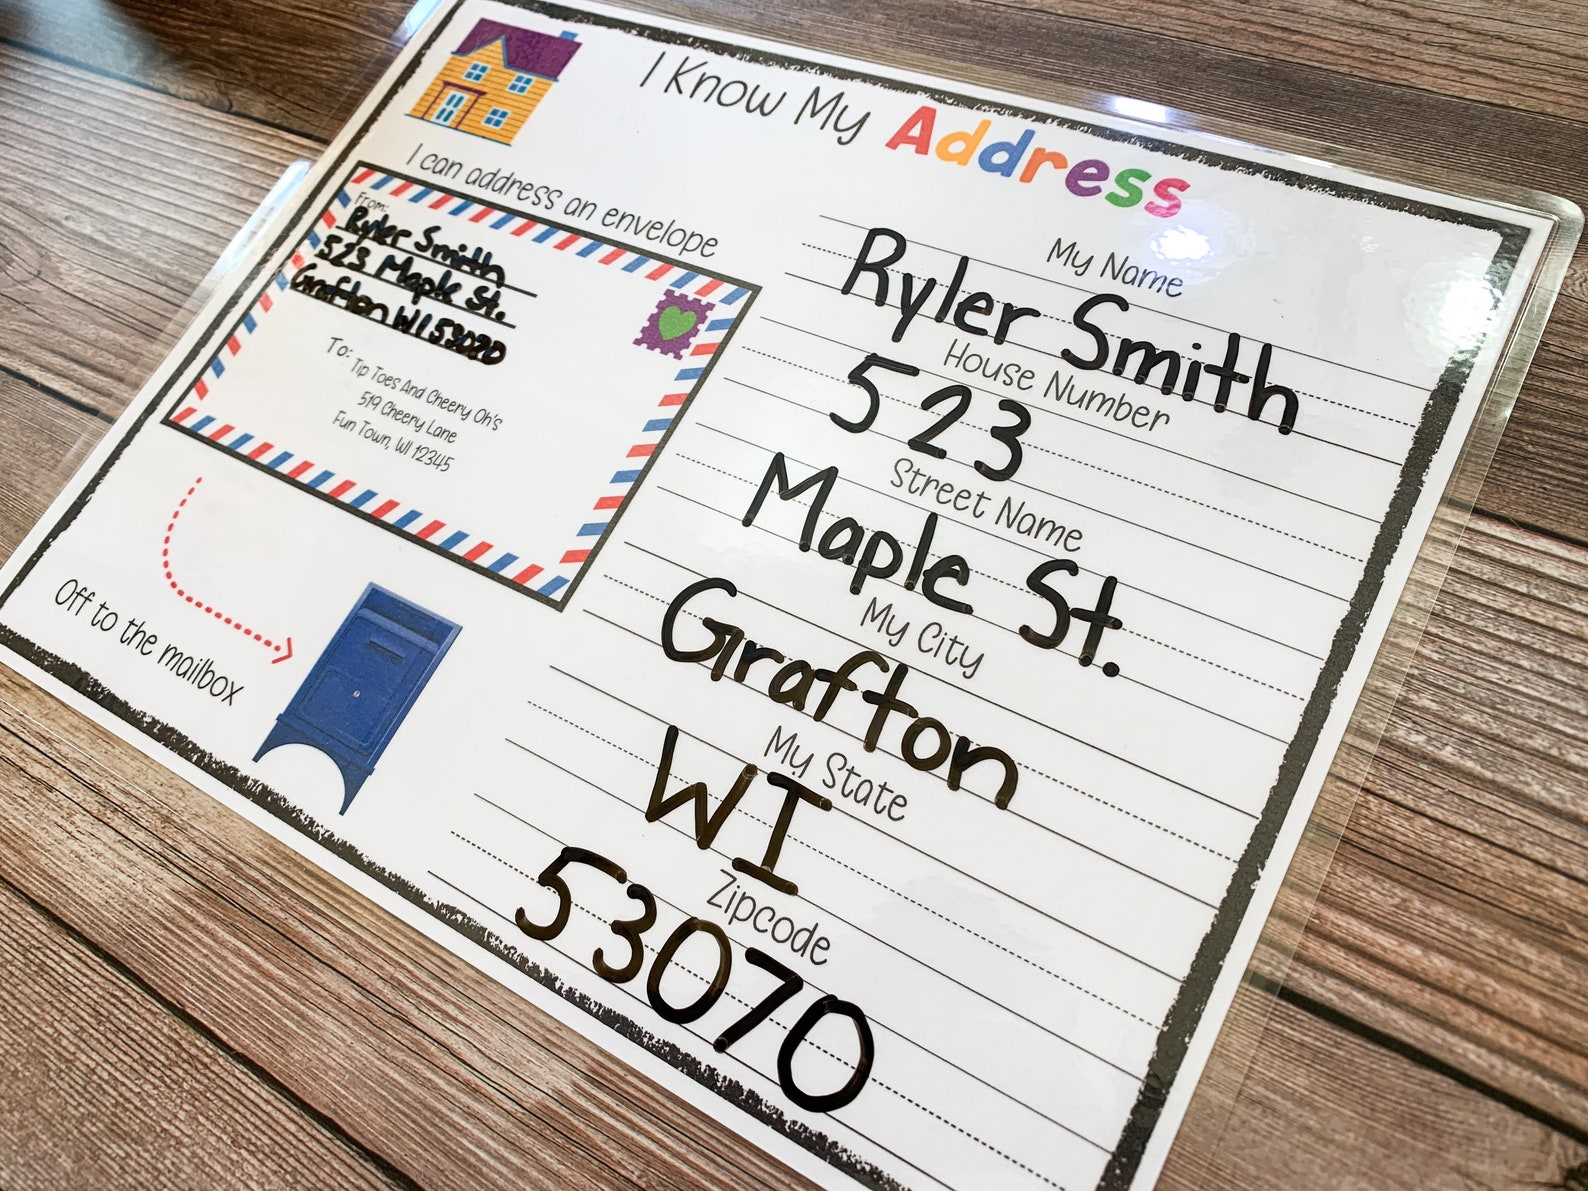 I Know My Address
I can address an envelope
From:
Ryler Smith
523 Maple St.
Grafton WI 53070
To:
Tip Toes And Cheery Oh's
519 Cheery Lane
Fun Town, WI 12345
Off to the mailbox
My Name
Ryler Smith
House Number
523
Street Name
Maple St.
My City
Grafton
My State
WI
Zipcode
53070